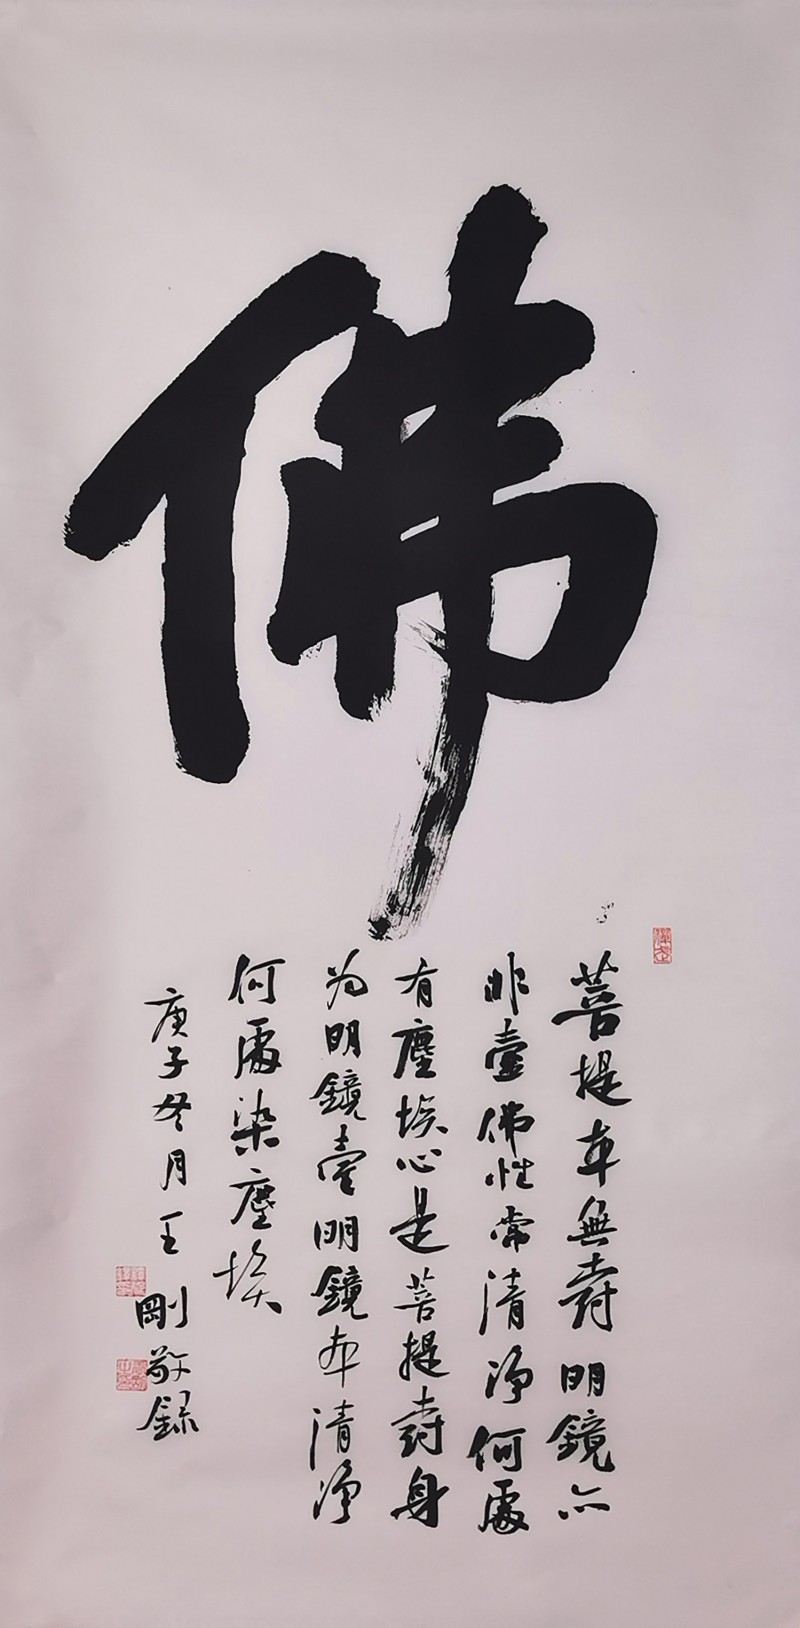 佛
菩提本無樹明鏡亦
非臺佛性常清净何處
有塵埃心是菩提樹身
为明鏡臺明鏡本清净
何處染塵埃
庚子冬月王剛敬録